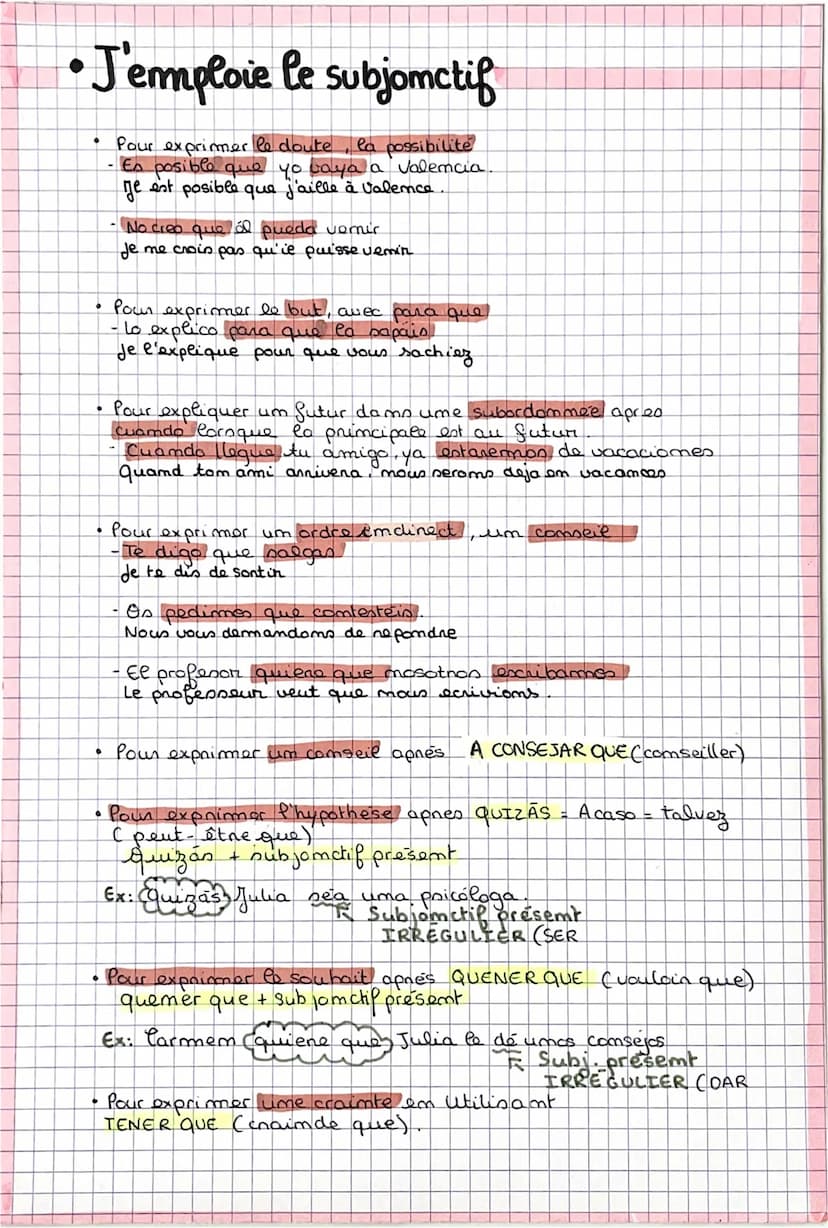 • J'emploie le subjonctif
• Pour exprimer le doute, la possibilité
- Es posible que yo vaya a Valencia.
Il est posible que j'aille à Valence.
- No creo que él pueda venir
Je me crois pas qu'il puisse venir
• Pour exprimer le but, avec para que
- Lo explico para que lo sapáis
Je l'explique pour que vous sachiez
• Pour expliquer un futur dans une subordonnée apres
cuando lorsque la principale est au futur.
- Cuando llegue tu amigo, ya estaremos de vacaciones
Quand ton ami arrivera, nous serons deja en vacances
• Pour exprimer un ordre indirect, un conseil
- Te digo que salgas
Je te dis de sortir
- Os pedimos que contestéis.
Nous vous demandons de repondre
- El profesor quiere que nosotros escribamos
Le professeur veut que nous ecrivions.
• Pour exprimer un conseil après A CONSEJAR QUE (conseiller)
• Pour exprimer l'hypothèse apres QUIZÁS = Acaso = talvez
( peut-être que)
Quizás + subjonctif présent
Ex: Quizás Julia sea una psicóloga.
Subjonctif présent
IRRÉGULIER (SER
• Pour exprimer le souhait après QUERER QUE (vouloir que)
querer que + subjonctif présent
Ex: Carmen quiere que Julia le dé unos consejos
Subj. présent
IRRÉGULIER (DAR
• Pour exprimer une crainte en utilisant
TENER QUE (crainde que).